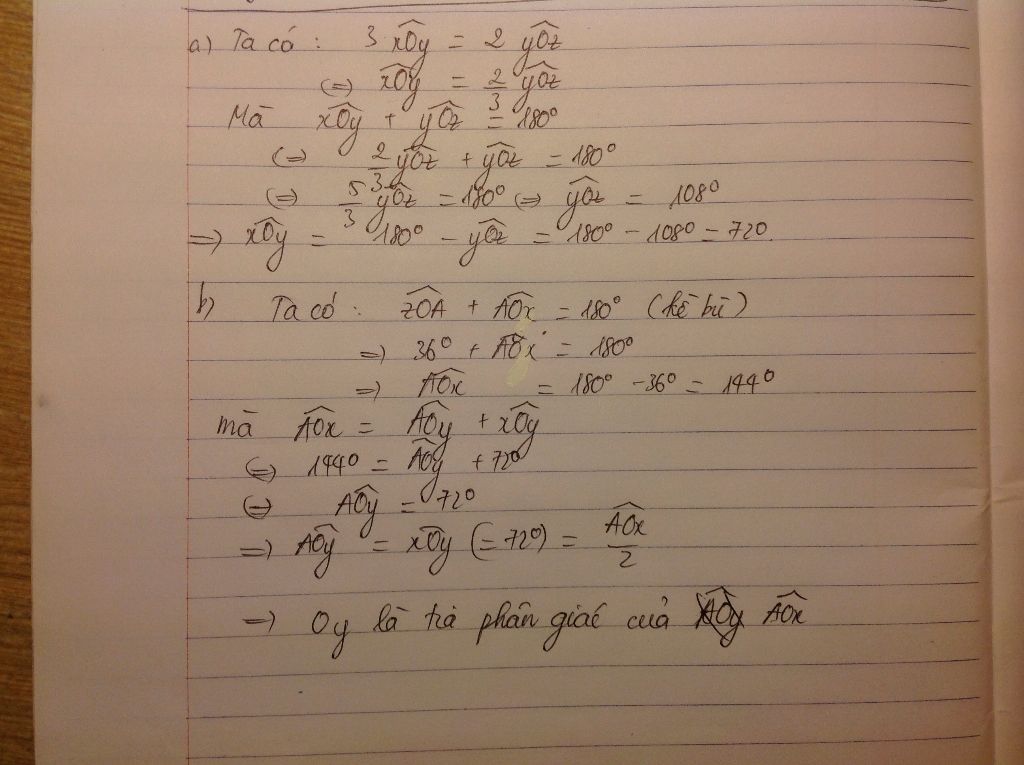 a) Ta có : 3 xOy = 2 yOz
(=) xOy = 2/3 yOz
Mà xOy + yOz = 180°
(=) 2/3 yOz + yOz = 180°
(=) 5/3 yOz = 180° (=) yOz = 108°
=) xOy = 180° - yOz = 180° - 108° = 720.
b) Ta có : zOA + AOx = 180° (kề bù)
=) 36° + AOx = 180°
=) AOx = 180° - 36° = 144°
mà AOx = AOy + xOy
(=) 144° = AOy + 72°
(=) AOy = 72°
=) AOy = xOy (= 72°) = AOx/2
=) Oy là tia phân giác của AOx